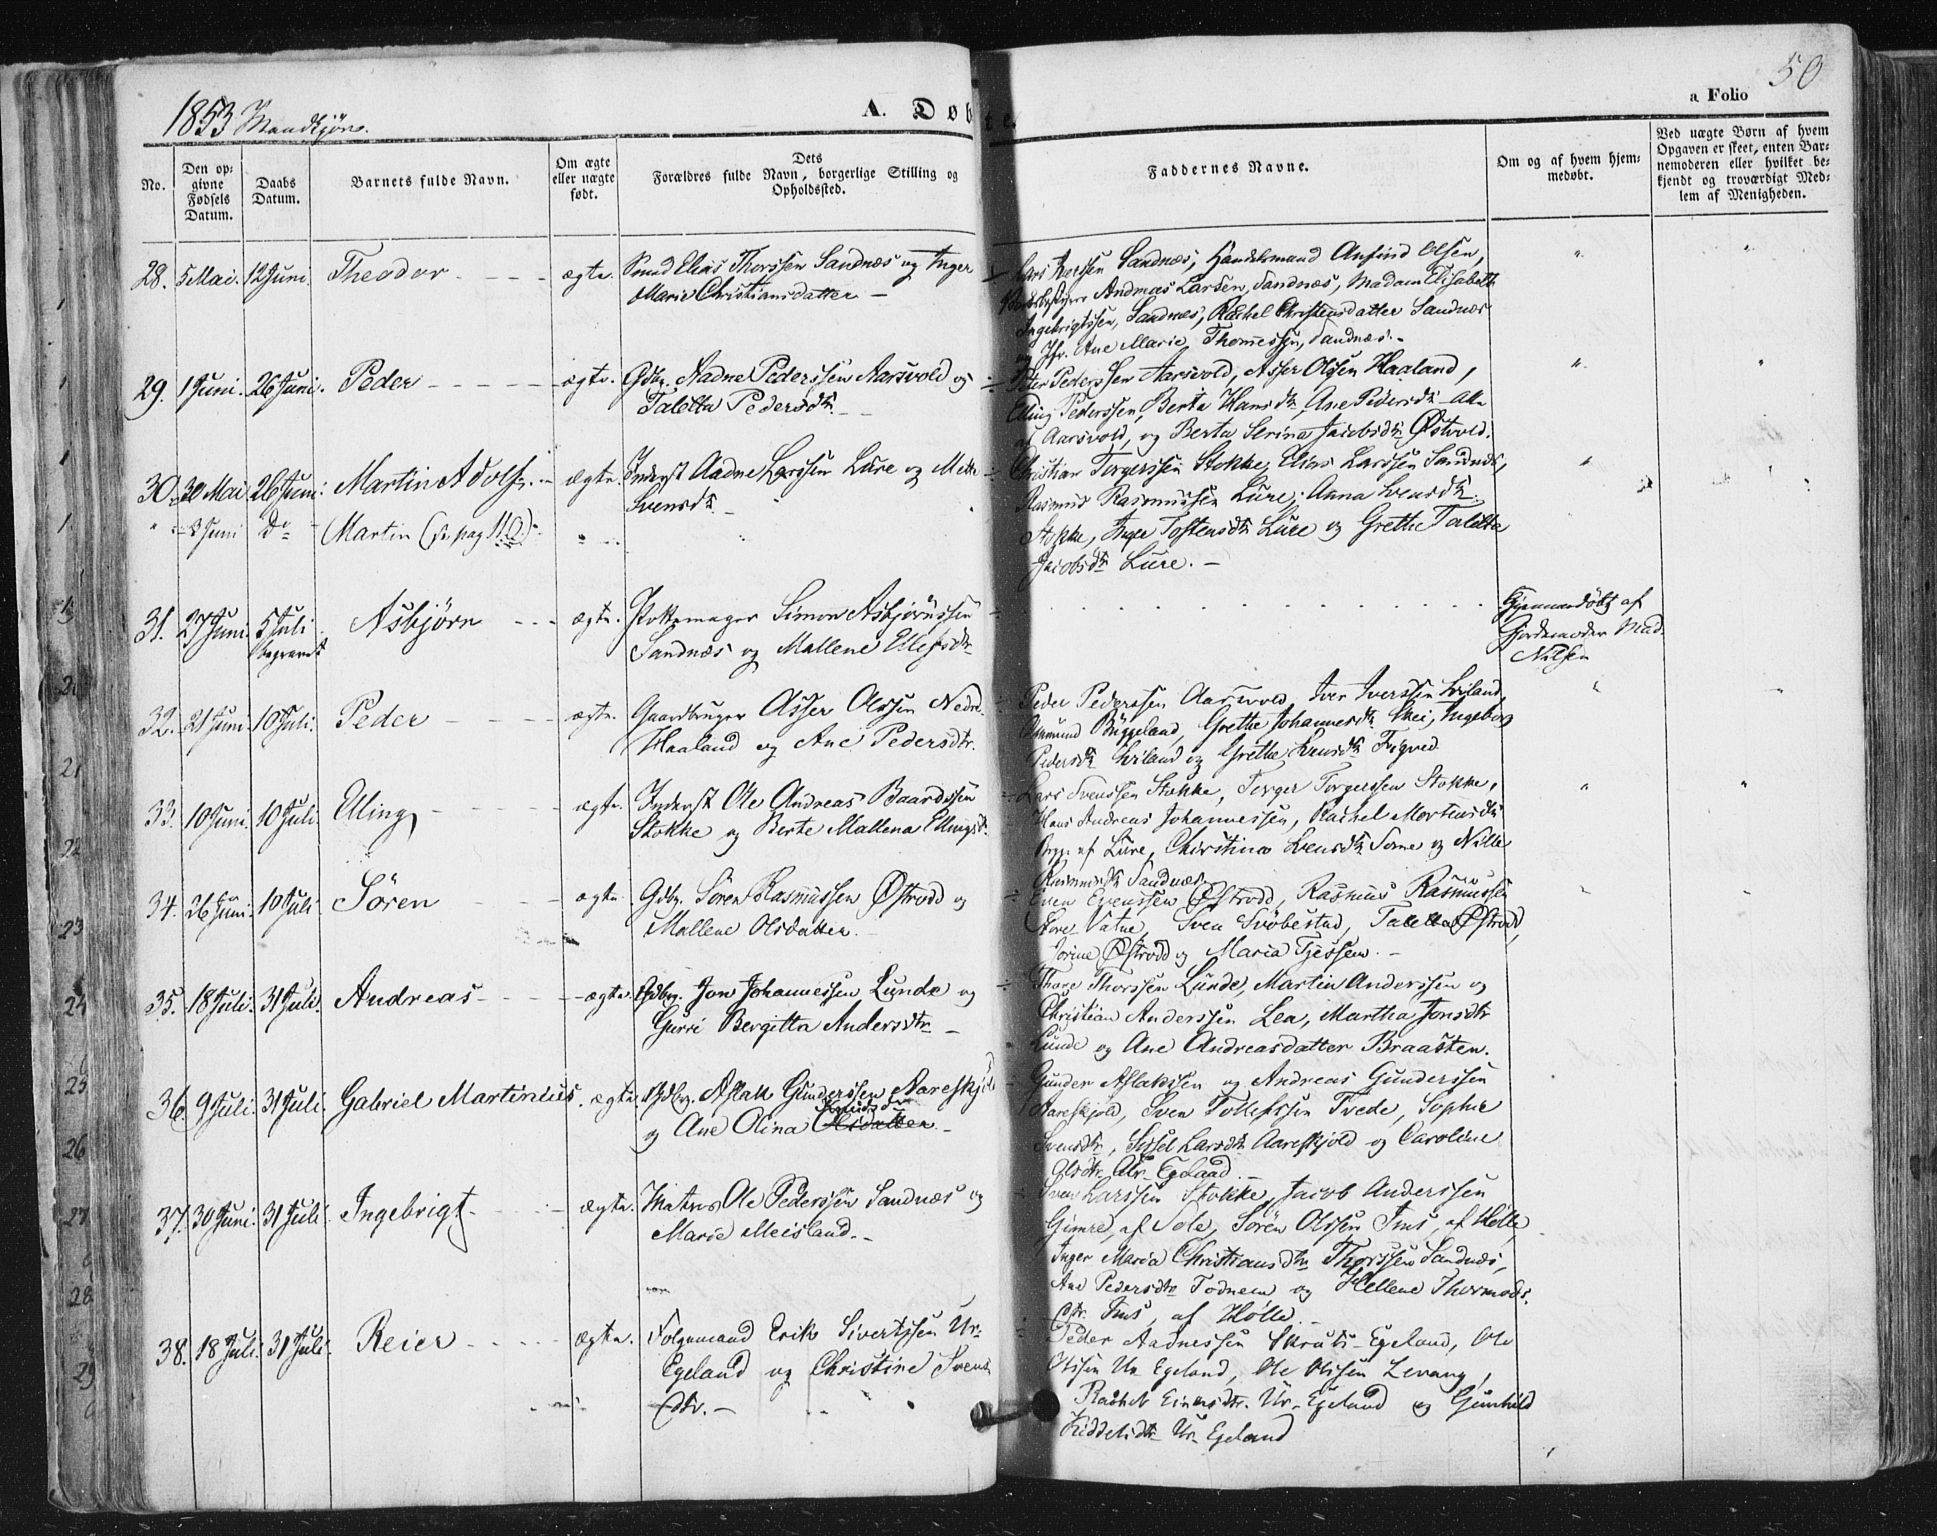 1853 Mandkjøn.
A. Døbte.
a Folio
50
No.
Den op-
givne
Fødsels
Datum.
Daabs
Datum.
Barnets fulde Navn.
Om ægte
eller uægte
født.
Dets
Forældres fulde Navn, borgerlige Stilling og
Opholdssted.
Faddernes Navne.
Om og af hvem hjem-
medøbt.
Ved uægte Børn af hvem
Opgaven er skeet, enten Bar-
nemoderen eller hvilket be-
kjendt og troværdigt Med-
lem af Menigheden.
28. 5 Mai. 12 Juni Theodor ægte. Smed Elias Thorssen Sandnæs og Inger
Marie Christiansdatter
Lars Iversen Sandnæs, Handelsmand Anfind Olsen,
Andreas Larsen, Sandnæs, Madam Elisabeth
Ingebrigtssen, Sandnæs, Rachel Christensdatter Sandnæs
og Jfr. Ane Marie Thomessen, Sandnæs.
29. 1 Juni. 26 Juni. Peder ægte. Gdbg. Aadne Pederssen Aarsvold og
Taletta Pedersdtr.
Peter Pederssen Aarsvold, Asser Olsen Haaland,
Elling Pederssen, Berta Hansdtr, Ane Pedersdtr alle
af Aarsvold, og Berta Serina Jacobsdtr Østvold.
30. 30 Mai 26 Juni. Martin Adolf. ægte. Inderst Aadne Larssen Lure og Mette
Svensdtr.
Christian Torgerssen Stokke, Elias Larssen Sandnæs,
Rasmus Rasmussen Lure, Anna Svensdtr
Stokke, Inger Tostensdtr Lure og Grethe Taletta
Jacobsdtr Lure.
" 3 Juni Do Martin (se pag 110)
31. 27 Juni. 5 Juli
begravet
Asbjørn ægte. Pottemager Simon Asbjørnssen
Sandnæs og Mallene Ellefsdtr
Hjemmedøbt af
Gjordemoder Mad.
Nilsen
32. 21 Juni. 10 Juli. Peder ægte. Gaardbruger Asser Olssen Nedre
Haaland og Ane Pedersdtr.
Peder Pederssen Aarsvold, Iver Iverssen Seiland,
Osmund Bryggeland, Grethe Johannesdtr Skei, Ingeborg
Pedersdtr Seiland og Grethe Svensdtr
33. 10 Juni. 10 Juli. Elling ægte. Inderst Ole Andreas Baardssen
Stokke og Berte Mallena Ellingsdtr.
Lars Svenssen Stokke, Torger Torgerssen Stokke,
Hans Andreas Johannessen, Rachel Mortensdtr
af Lure, Christina Svensdtr Somme og Nille
Rasmusdtr Sandnæs
34. 26 Juni. 10 Juli Søren ægte. Gdbg. Søren Rasmussen Østrodd og
Mallene Olsdatter.
Even Evenssen Østrodd, Rasmus Rasmussen
Store Vatne, Sven Svøbestad, Taletta Østrodd,
Jorine Østrodd og Maria Tjessem.
35. 18 Juli. 31 Juli. Andreas ægte. Gdbg. Jon Johannessen Lunde og
Gurri Bergitta Andersdtr
Thore Thorssen Lunde, Martin Anderssen og
Christian Anderssen Lea, Martha Jonsdtr
Lunde og Ane Andreasdatter Braasten.
36. 9 Juli. 31 Juli. Gabriel Martinius. ægte. Gdbg. Aslak Gunderssen Aareskjold
og Ane Olina Olsdatter.
Gunder Aslakssen og Andreas Gunderssen
Aareskjold, Sven Tollefssen Tvede, Sophie
Svensdtr, Sissel Larsdtr Aareskjold og Caroline
Olsdtr Ur-Egeland.
37. 30 Juni. 31 Juli. Ingebrigt ægte. Matros Ole Pederssen Sandnæs og
Marie Meisland.
Sven Larssen Stokke, Jacob Anderssen
Gimre, af Sole, Søren Olssen Ims, af Hølle,
Inger Maria Christiansdtr Thorssen Sandnæs,
Ane Pedersdtr Todnem og Hellene Thormods-
dtr. Ims, af Hølle.
38. 18 Juli. 31 Juli. Reier ægte. Følgemand Erik Sivertssen Ur-
Egeland og Christine Svens-
dtr.
Peder Aadnessen Skruds-Egeland, Ole
Olssen Ur-Egeland, Ole Olssen Levang,
Rachel Einersdtr. Ur-Egeland og Gunhild
Kiddelsdtr Ur-Egeland